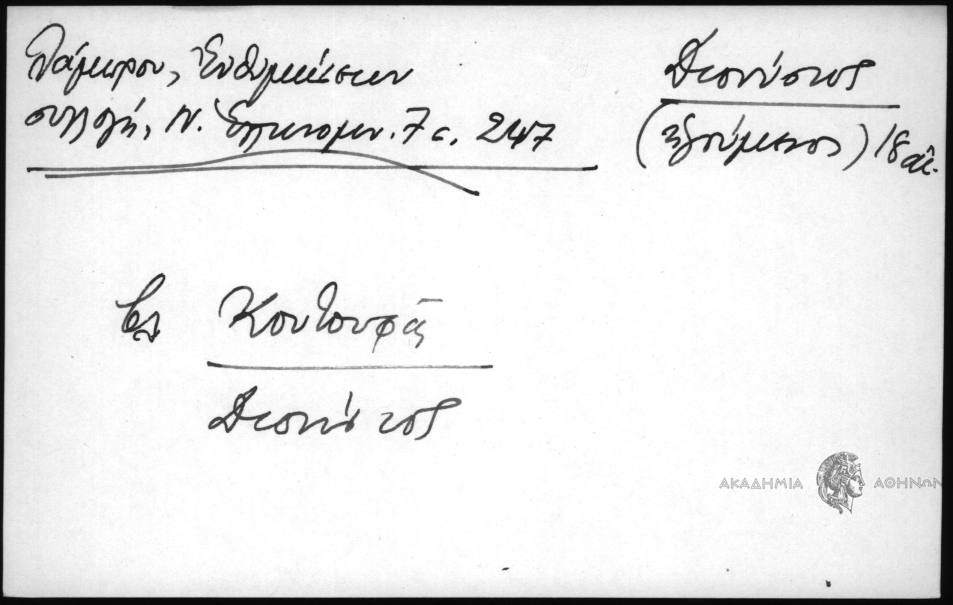 Λάμπρου, Ἐνθυμήσεων
συλλογή, Ν. Ἑλληνομν. 7 σ. 247
Διονύσιος
(ἡγούμενος) 18 αἰ.
βλ Κουτουφᾶς
Διονύσιος
ΑΚΑΔΗΜΙΑ ΑΘΗΝΩΝ